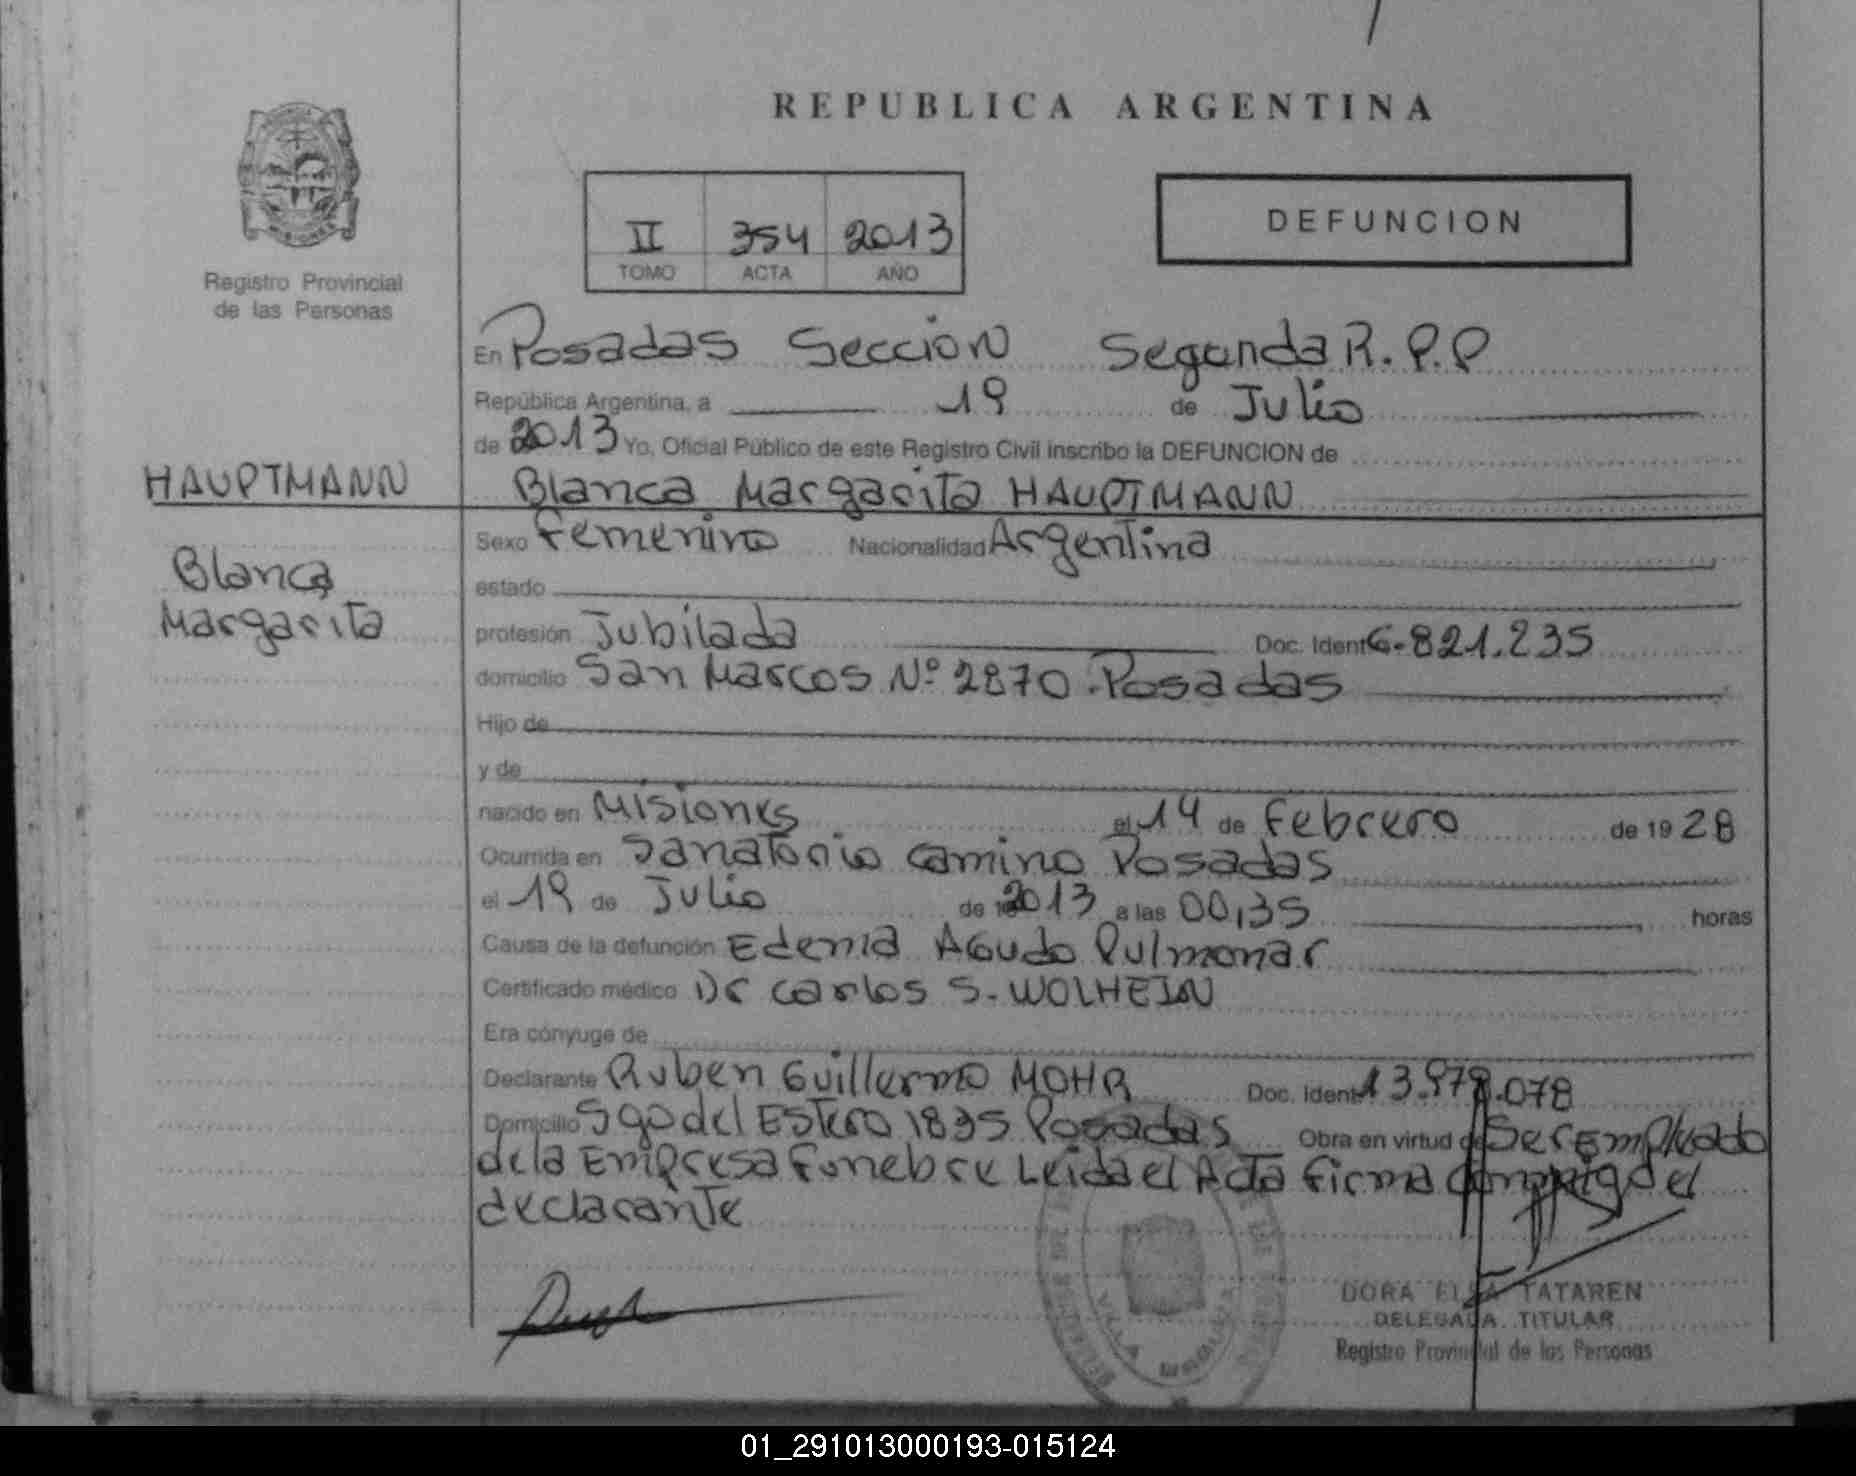 REPUBLICA ARGENTINA
II 354 2013
TOMO ACTA AÑO
DEFUNCION
Registro Provincial
de las Personas
En Posadas Sección Segunda R.P.P
República Argentina, a 19 de Julio
de 2013 Yo, Oficial Público de este Registro Civil inscribo la DEFUNCION de
HAUPTMANN
Blanca Margarita HAUPTMANN
Blanca
Margarita
Sexo Femenino Nacionalidad Argentina
estado
profesión Jubilada Doc. Ident 6.821.235
domicilio San Marcos Nº 2870.Posadas
Hijo de
y de
nacido en Misiones el 14 de Febrero de 19 28
Ocurrida en Sanatorio Camino Posadas
el 19 de Julio de 2013 a las 00,35 horas
Causa de la defunción Edema Agudo Pulmonar
Certificado médico Dr Carlos S. WOLHEIN
Era cónyuge de
Declarante Ruben Guillermo MOHR Doc. Ident 13.978.078
Domicilio Sgo del Estero 1835 Posadas Obra en virtud de Ser Empleado
de la Empresa Funebre Leida el Acta Firma conmigo el
declarante
DORA ELSA TATAREN
DELEGADA TITULAR
Registro Provincial de las Personas
01_291013000193-015124